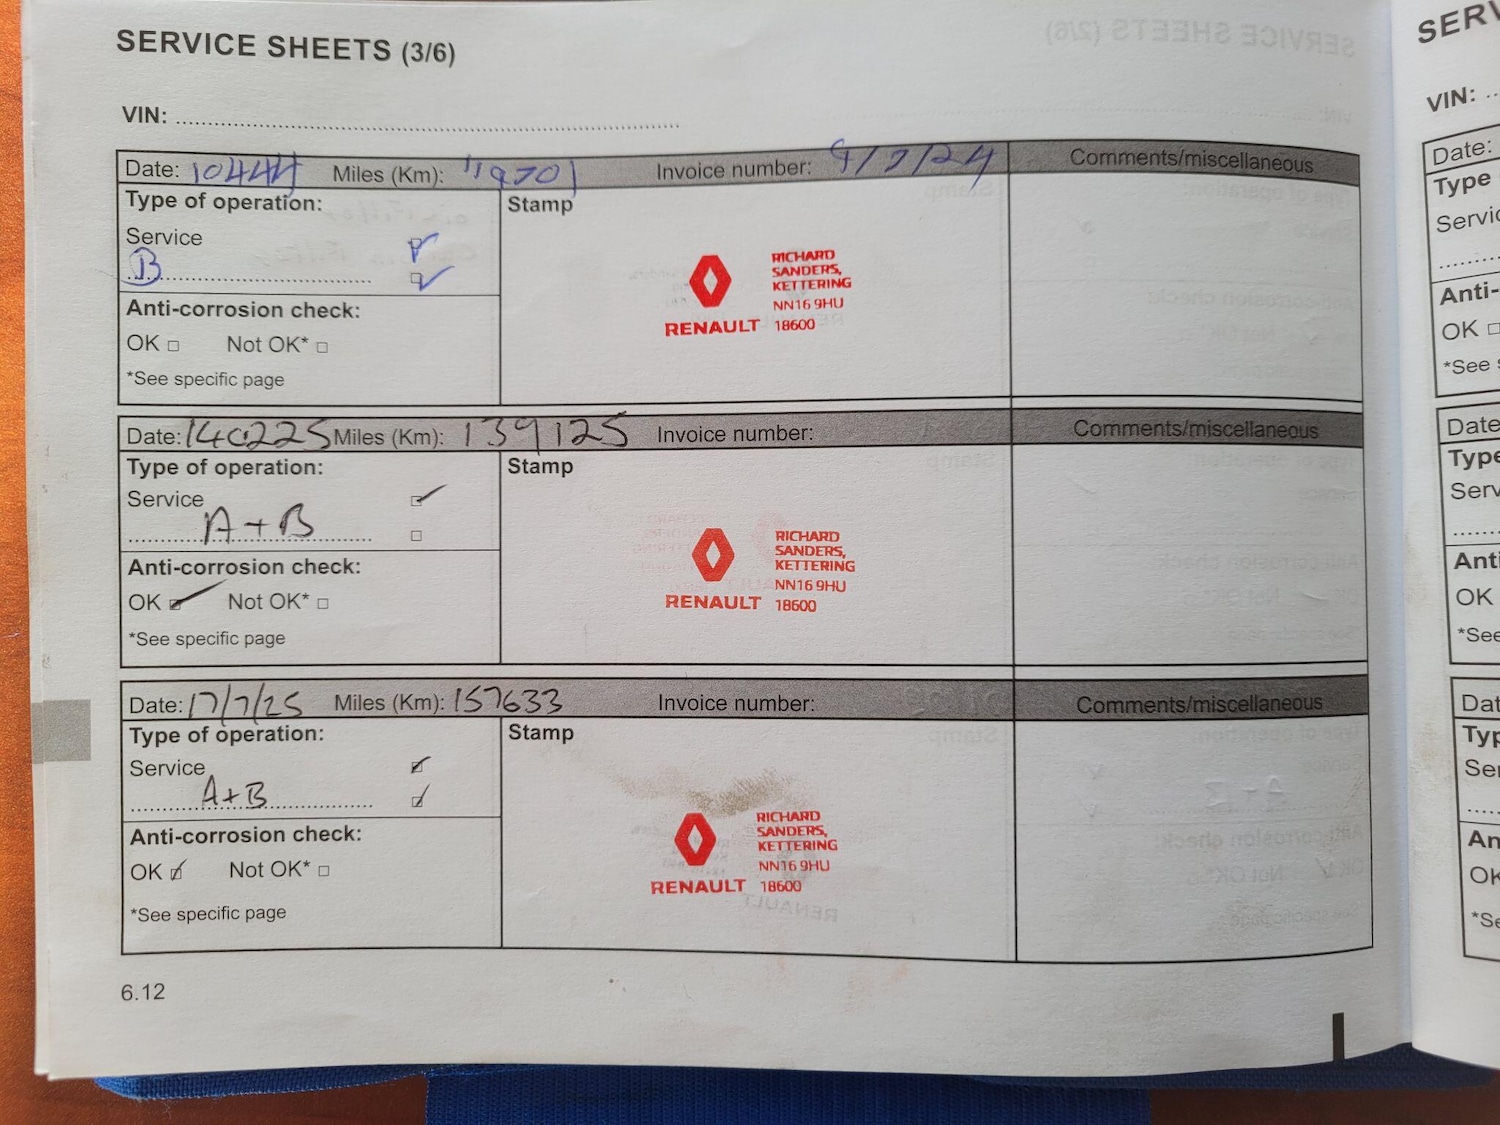 SERVICE SHEETS (3/6)
VIN:
Date: 10444 Miles (Km): 119701 Invoice number: 9/7/24 Comments/miscellaneous
Type of operation: Stamp
Service
B
RICHARD
SANDERS,
KETTERING
NN16 9HU
RENAULT 18600
Anti-corrosion check:
OK Not OK*
*See specific page
Date: Miles (Km): 139125 Invoice number: Comments/miscellaneous
Type of operation: Stamp
Service
A+B
RICHARD
SANDERS,
KETTERING
NN16 9HU
RENAULT 18600
Anti-corrosion check:
OK Not OK*
*See specific page
Date: 17/7/25 Miles (Km): 157633 Invoice number: Comments/miscellaneous
Type of operation: Stamp
Service
A+B
RICHARD
SANDERS,
KETTERING
NN16 9HU
RENAULT 18600
Anti-corrosion check:
OK Not OK*
*See specific page
6.12
VIN:
Date:
Type
OK
*See
Date
Type
Serv
OK